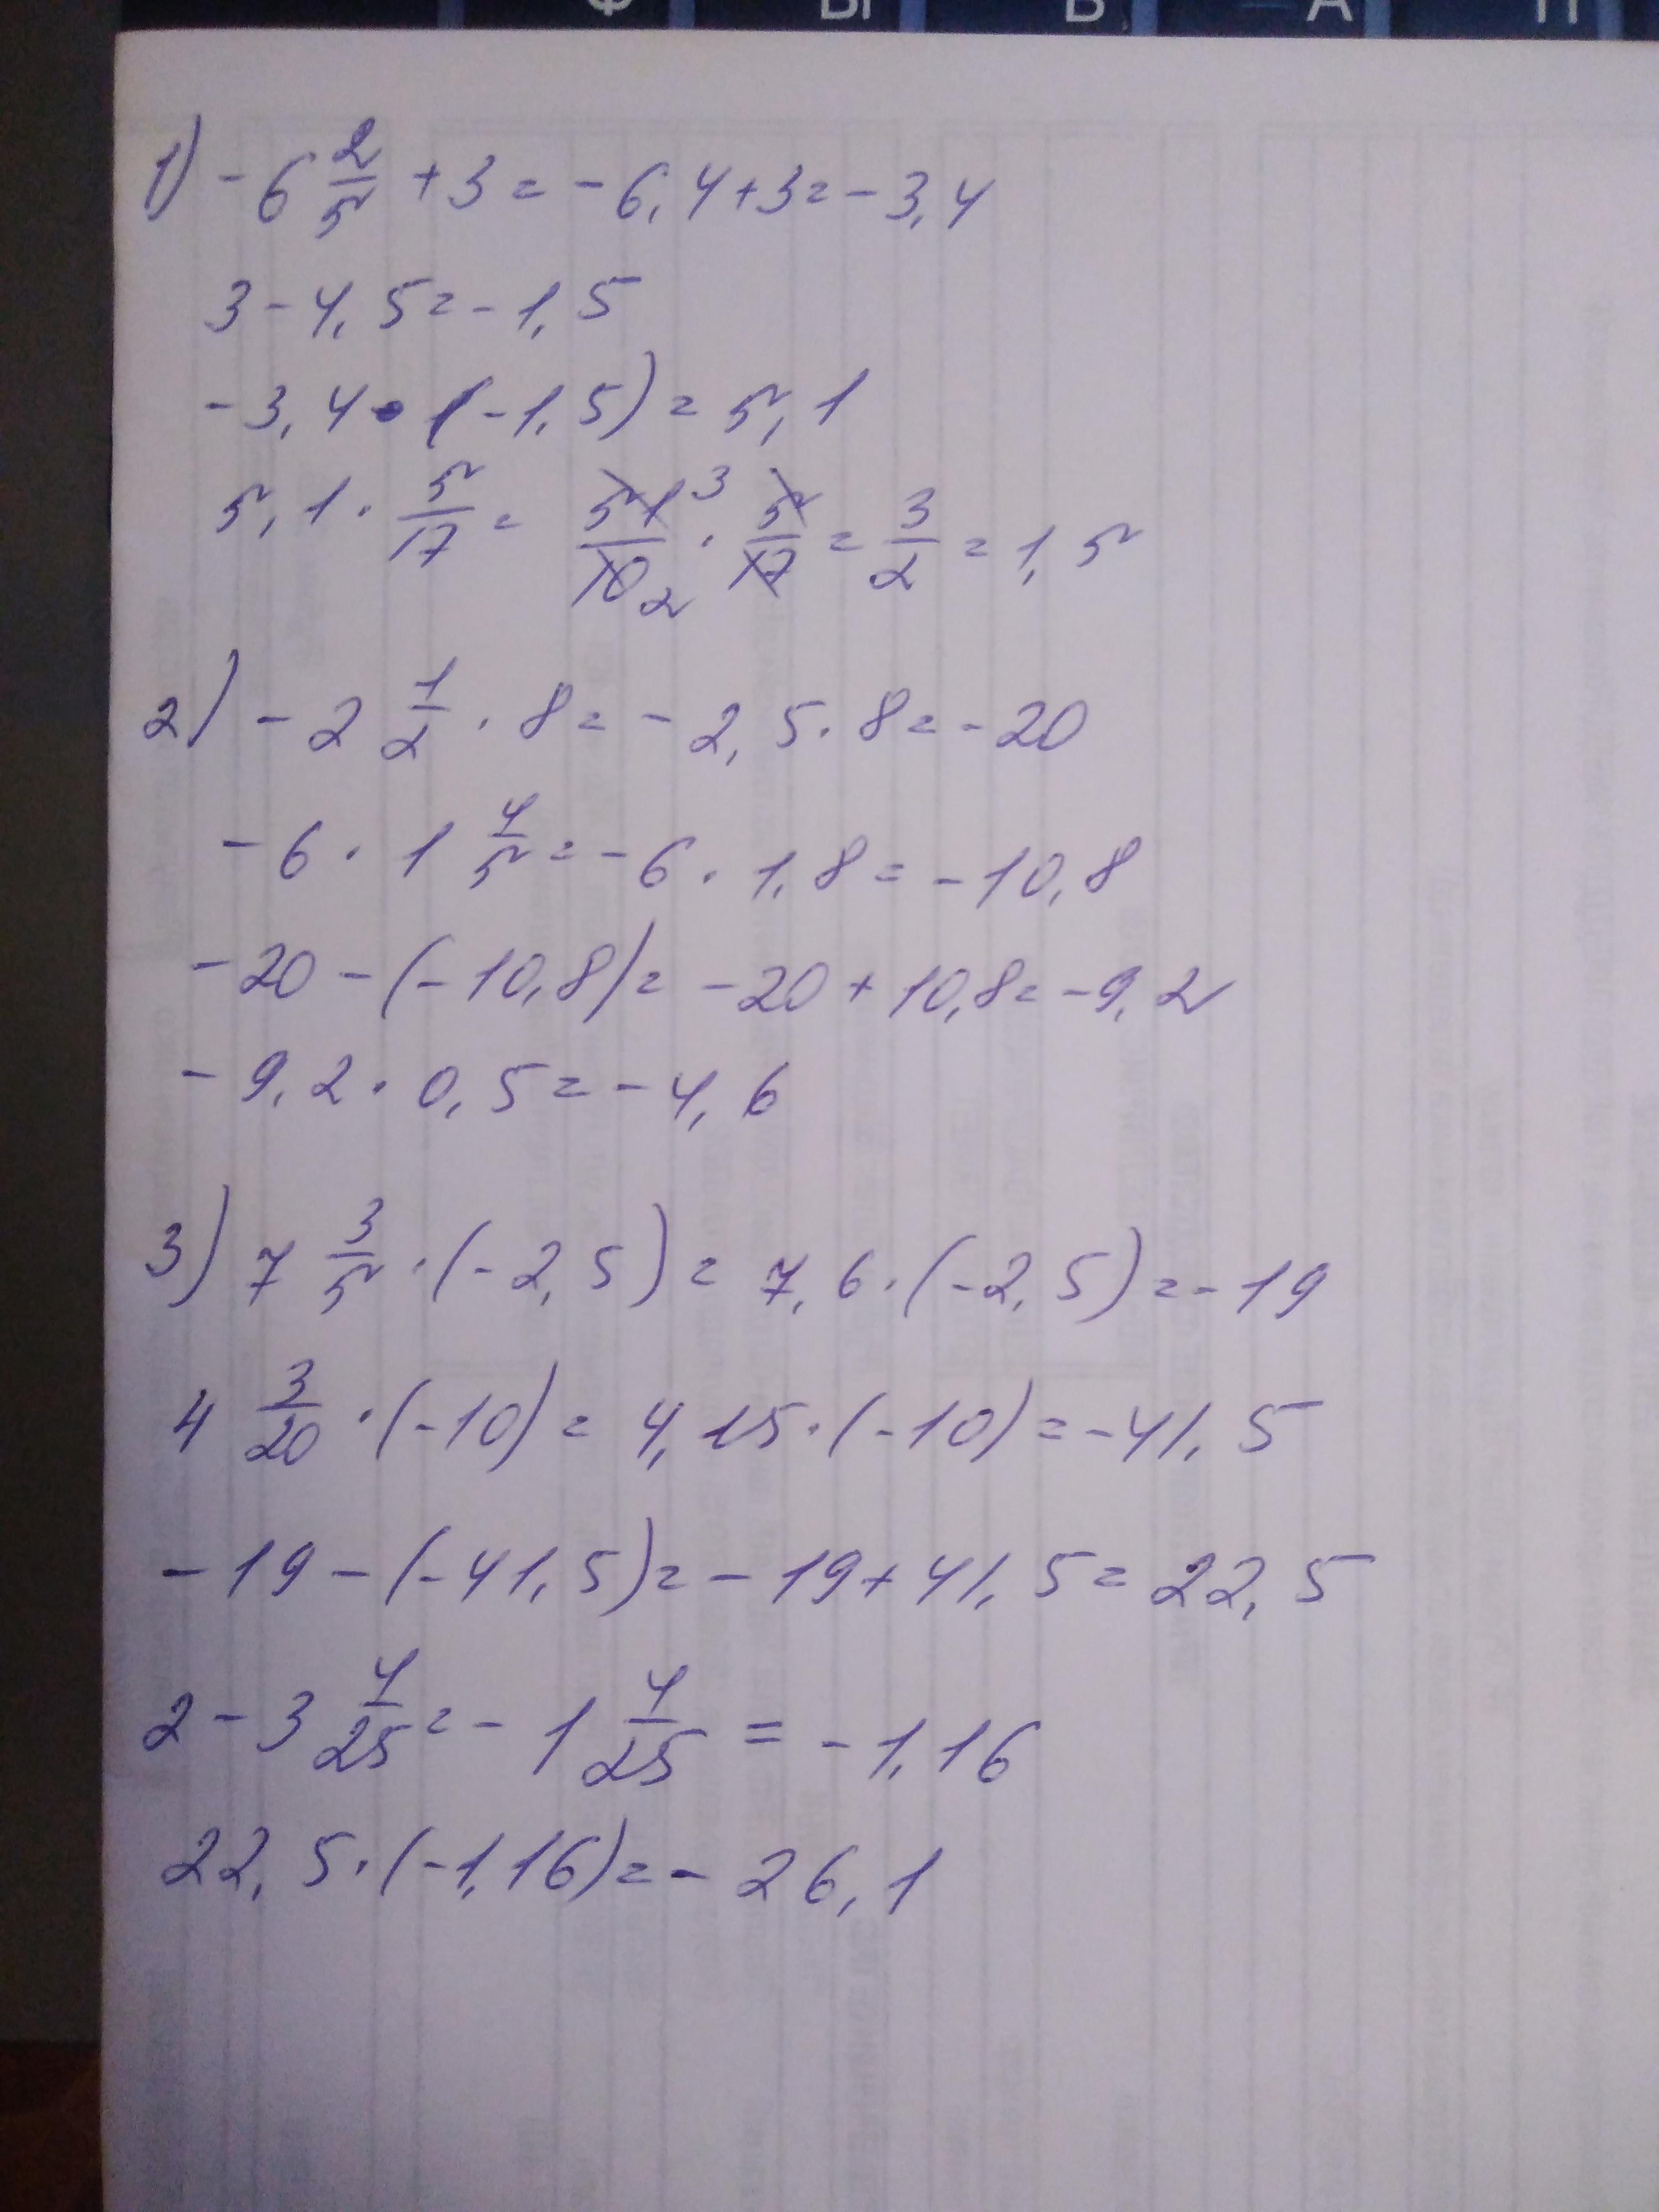 Ф Ы В А П
1) -6 2/5 + 3 = -6,4+3=-3,4
3-4,5=-1,5
-3,4·(-1,5)=5,1
5,1·5/17= 51/10 3 2 · 5/17 = 3/2 = 1,5
2) -2 1/2 · 8 = -2,5·8=-20
-6·1 4/5 = -6·1,8=-10,8
-20-(-10,8)=-20+10,8=-9,2
-9,2·0,5=-4,6
3) 7 3/5 ·(-2,5)=7,6·(-2,5)=-19
4 3/20 ·(-10)=4,15·(-10)=-41,5
-19-(-41,5)=-19+41,5=22,5
2-3 4/25 = -1 4/25 = -1,16
22,5·(-1,16)=-26,1